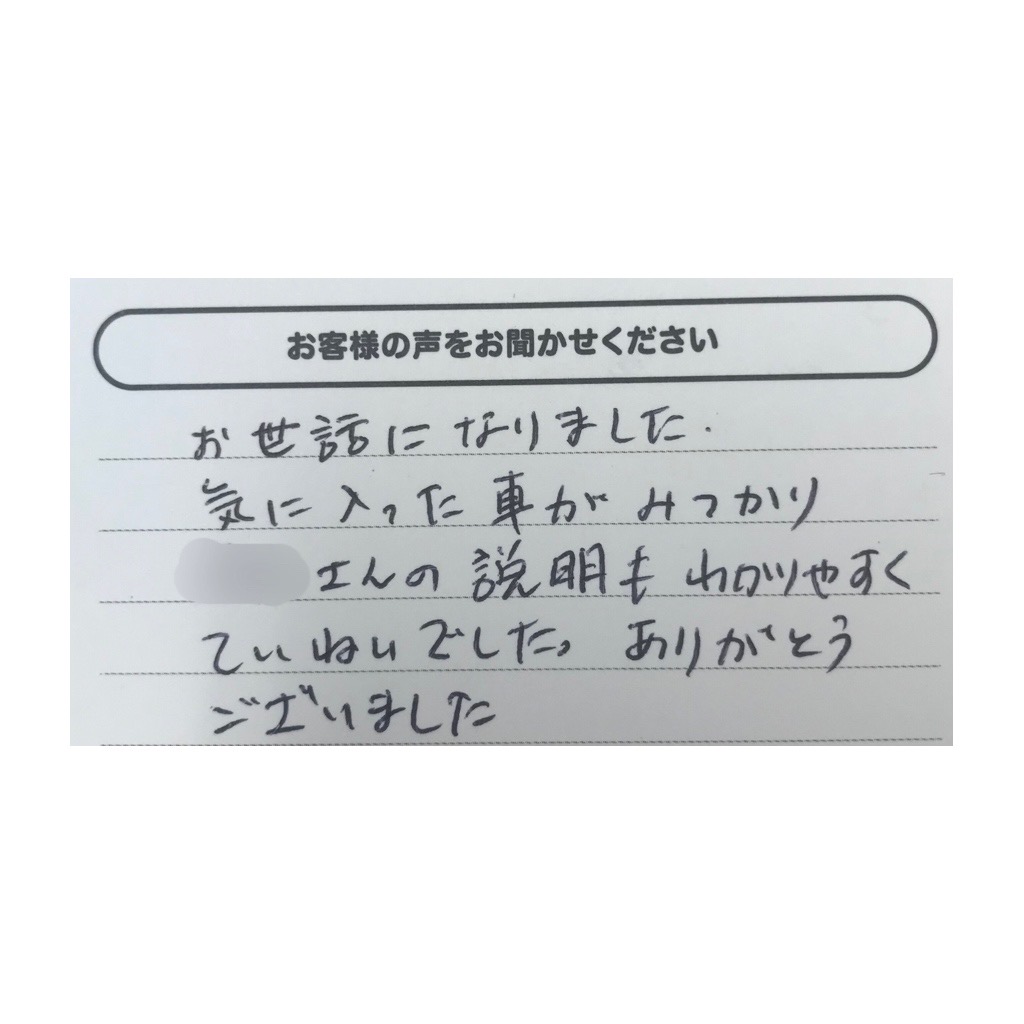 お客様の声をお聞かせください
お世話になりました.
気に入った車がみつかり
さんの説明もわかりやすく
ていねいでした。ありがとう
ございました